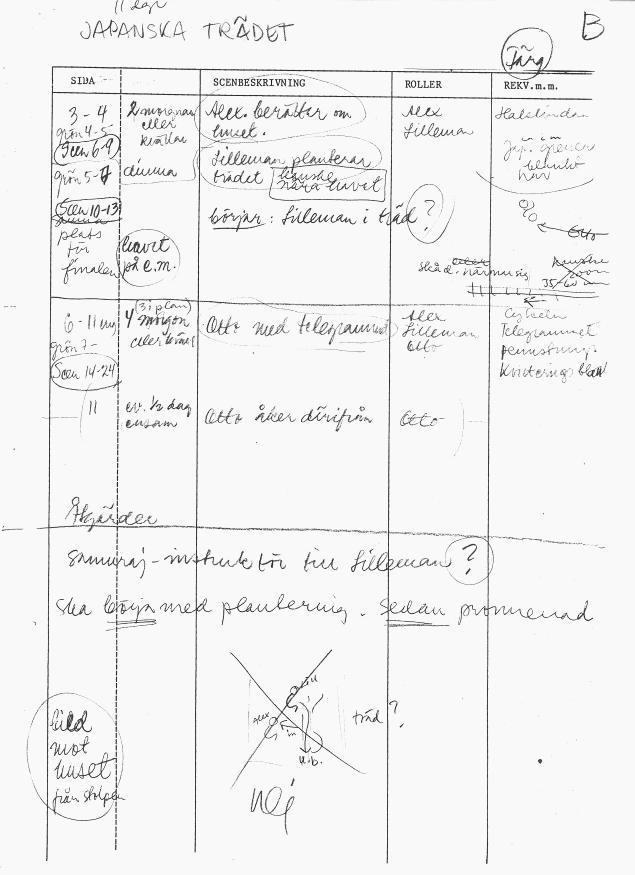 11 dgr
JAPANSKA TRÄDET
B
Färg
SIDA SCENBESKRIVNING ROLLER REKV.m.m.
3-4 2 morgnar Alex. berättar om Alex Halslindan
grön 4-5 eller huset. Lilleman
Scen 6-9 kvällar Lilleman planterar Jap.
grön 5-7 dimma trädet nära havet
Scen 10-13 börjar: Lilleman i träd ?
plats havet Otto
för på e.m. Skåd. närmusig
finalen 35-60
6-11 4 (3 i plan) Otto med telegrammet Alex Cykeln
grön 7- morgon Lilleman Telegrammet
Scen 14-24 eller Otto
11 ev. 1/2 dag Otto åker därifrån Otto
ensam
Åtgärder
Samuraj-instruktör till Lilleman ?
Ska börja med plantering. Sedan promenad
Lill
alex träd ?
u.b.
Nej
bild
mot
huset
från stolpen